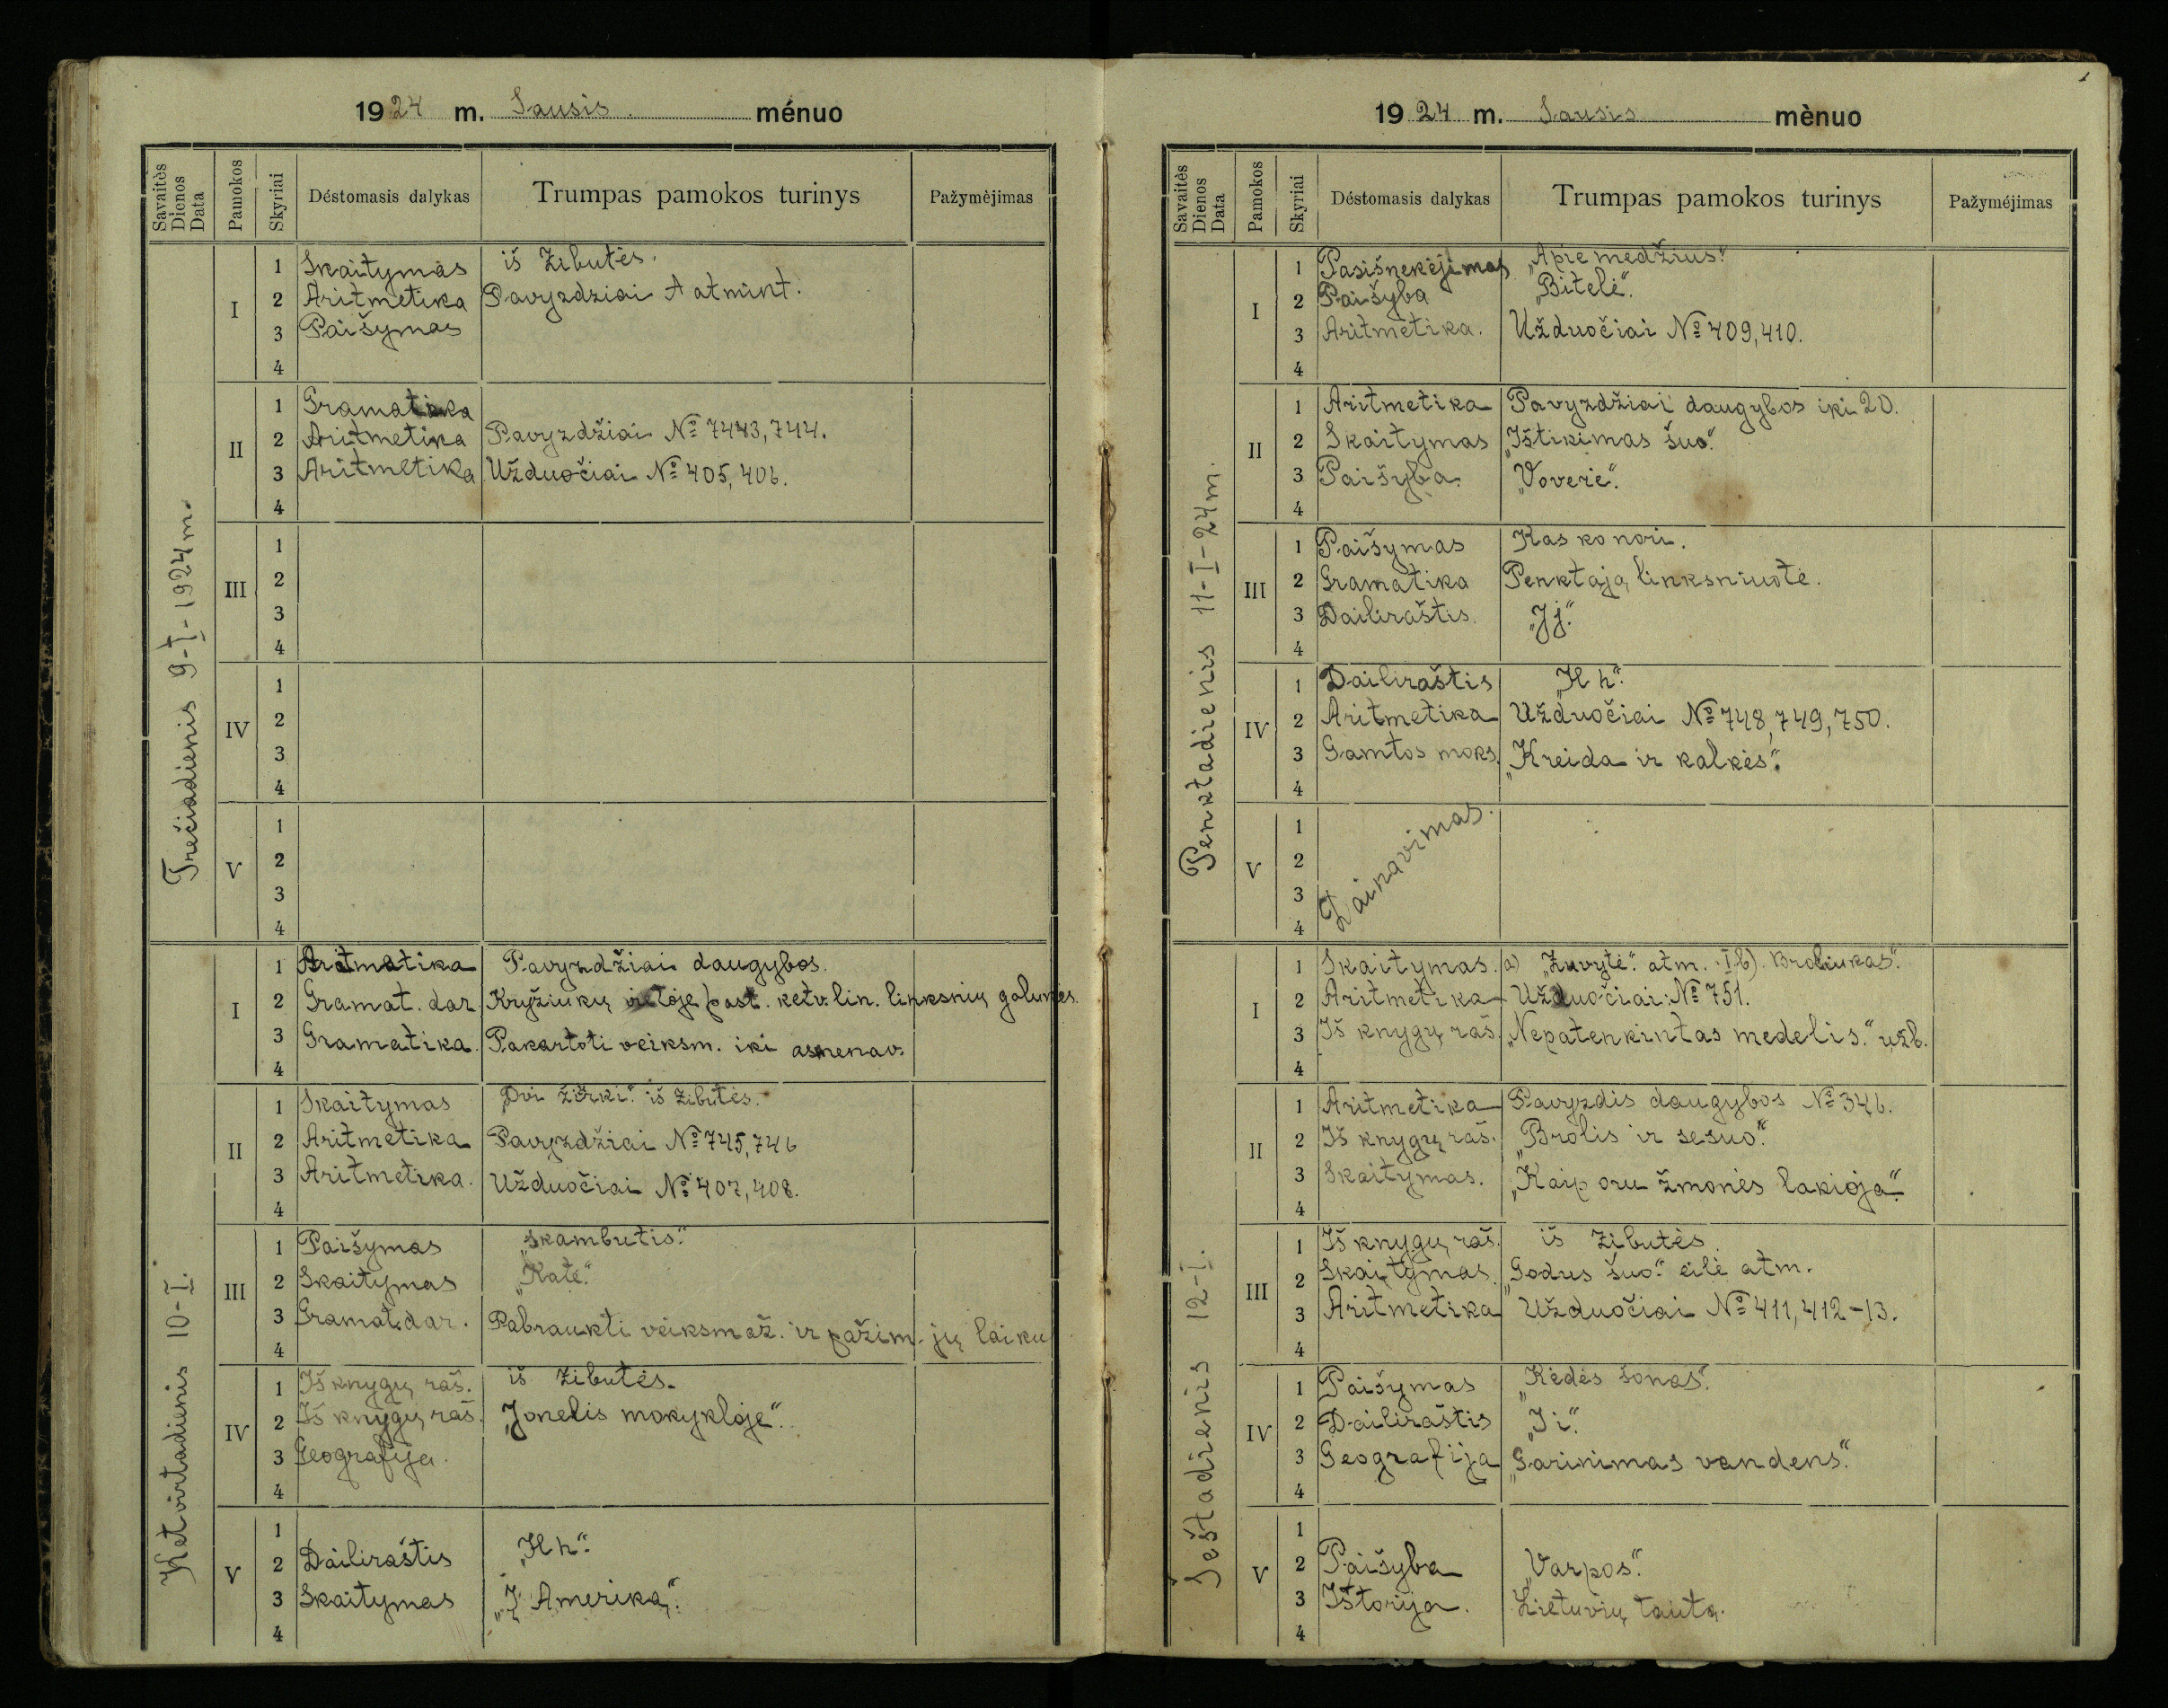 1924 m. Sausis ménuo
Savaitės Dienos Data
Pamokos
Skyriai
Déstomasis dalykas
Trumpas pamokos turinys
Pažymėjimas
Trečiadienis 9-I-1924 m.
I
1 Skaitymas iš Žibutės.
2 Aritmetika Pavyzdziai atmint.
3 Paišymas
4
II
1 Gramatika
2 Aritmetika Pavyzdžiai № 7443, 744.
3 Aritmetika Užduočiai № 405, 406.
4
III
1
2
3
4
IV
1
2
3
4
V
1
2
3
4
Ketvirtadienis 10-I.
I
1 Aritmatika Pavyzdžiai daugybos.
2 Gramat. dar. Kryžiukų vietoje past. ketv. lin. linksnių galunes.
3 Gramatika. Pakartoti veiksm. iki asmenav.
4
II
1 Skaitymas „Dvi žirki." iš Žibutės.
2 Aritmetika Pavyzdžiai № 745, 746
3 Aritmetika. Užduočiai № 407, 408.
4
III
1 Paišymas „Skambutis."
2 Skaitymas „Katė."
3 Gramat. dar. Pabraukti veiksmaž. ir pažim. jų laiku
4
IV
1 Iš knygų raš. iš Žibutės.
2 Iš knygų raš. „Jonelis mokykloje".
3 Geografija.
4
V
1
2 Dailiraštis „H h".
3 Skaitymas „Į Ameriką".
4
1924 m. Sausis mènuo
Savaitès Dienos Data
Pamokos
Skyriai
Déstomasis dalykas
Trumpas pamokos turinys
Pažyméjimas
Penktadienis 11-I-24 m.
I
1 Pasišnekėjimas „Apie medžius."
2 Paišyba „Bitelė".
3 Aritmetika. Užduočiai № 409, 410.
4
II
1 Aritmetika Pavyzdžiai daugybos iki 20.
2 Skaitymas „Ištikimas šuo."
3 Paišyba. „Voverė".
4
III
1 Paišymas Kas ko nori.
2 Gramatika Penktąją linksniuotė.
3 Dailiraštis. „Jj."
4
IV
1 Dailiraštis „H h".
2 Aritmetika Užduočiai № 748, 749, 750.
3 Gamtos moks. „Kreida ir kalkės".
4
V
1
2
3
4
Dainavimas.
Šeštadienis 12-I.
I
1 Skaitymas. a) „Žuvytė". atm. b). Broliukas".
2 Aritmetika Užduočiai: № 751.
3 Iš knygų raš. „Nepatenkintas medelis." užb.
4
II
1 Aritmetika Pavyzdis daugybos № 346.
2 Iš knygų raš. „Brolis ir sesuo".
3 Skaitymas. „Kaip oru žmonės lakioja".
4
III
1 Iš knygų raš. iš Žibutės.
2 Skaitymas. „Godus šuo." eilė atm.
3 Aritmetika Užduočiai № 411, 412-13.
4
IV
1 Paišymas „Kėdės šonas".
2 Dailiraštis „Ii".
3 Geografija „Garinimas vandens."
4
V
1
2 Paišyba „Varpos".
3 Istorija. Lietuvių tauta.
4